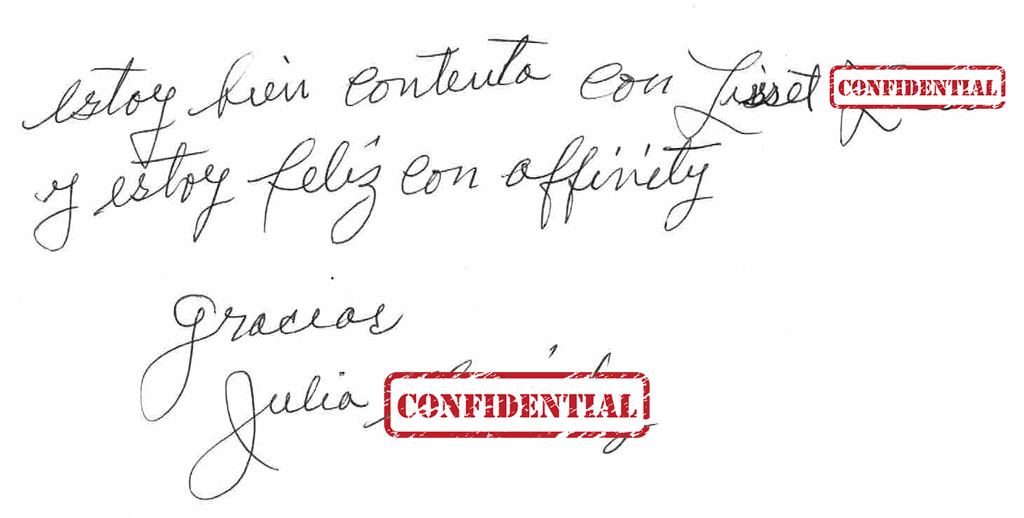 estoy bien contenta con Lisset CONFIDENTIAL
y estoy feliz con affinity
gracias
Julia CONFIDENTIAL